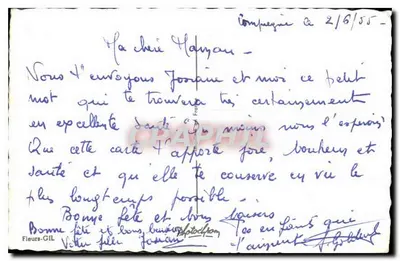 Compiègne le 2/6/55 -
Ma chère Maman -
Nous t'envoyons Josiane et moi ce petit
mot qui te trouvera très certainement
en excellente santé du moins nous l'espérons
Que cette carte t'apporte joie, bonheur et
santé et qu'elle te conserve en vie le
plus longtemps possible -
Bonne fête et bons baisers
Bonne fête et bons baisers
Tes enfants qui
Votre Josiane
t'aiment
Fleurs-GIL